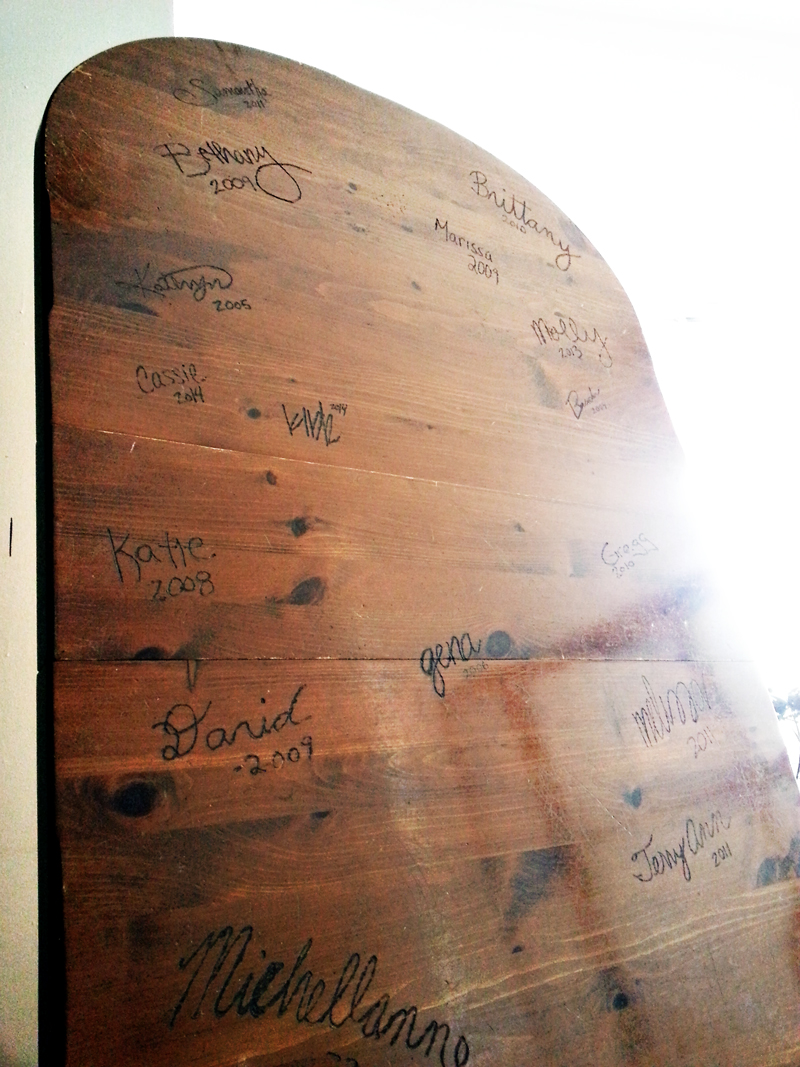 Samantha
2011
Bethany
2009
Brittany
2010
Marissa
2009
Kathryn
2005
Molly
2013
Cassie
2014
Kirk 2014
Katie
2008
Gregg
2010
gena
2006
David
-2009
melissa
2011
TerryAnn
2011
Michellanne